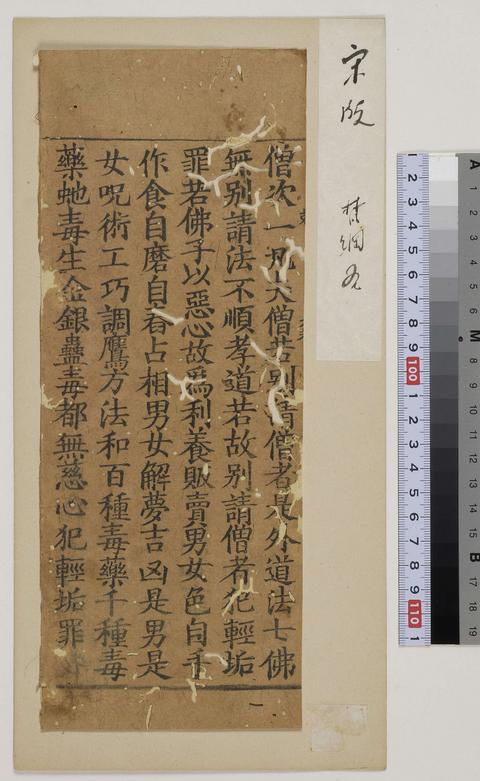 宋版
梵網
僧次一凡夫僧若別請僧者是外道法七佛
無別請法不順孝道若故別請僧者犯輕垢
罪若佛子以惡心故爲利養販賣男女色自手
作食自磨自舂占相男女解夢吉凶是男是
女呪術工巧調鷹方法和百種毒藥千種毒
藥虵毒生金銀蠱毒都無慈心犯輕垢罪
1 2 3 4 5 6 7 8 9 100 1 2 3 4 5 6 7 8 9 110 1
A 1 2 3 4 5 6 M 8 9 10 11 12 13 14 15 B 17 18 19